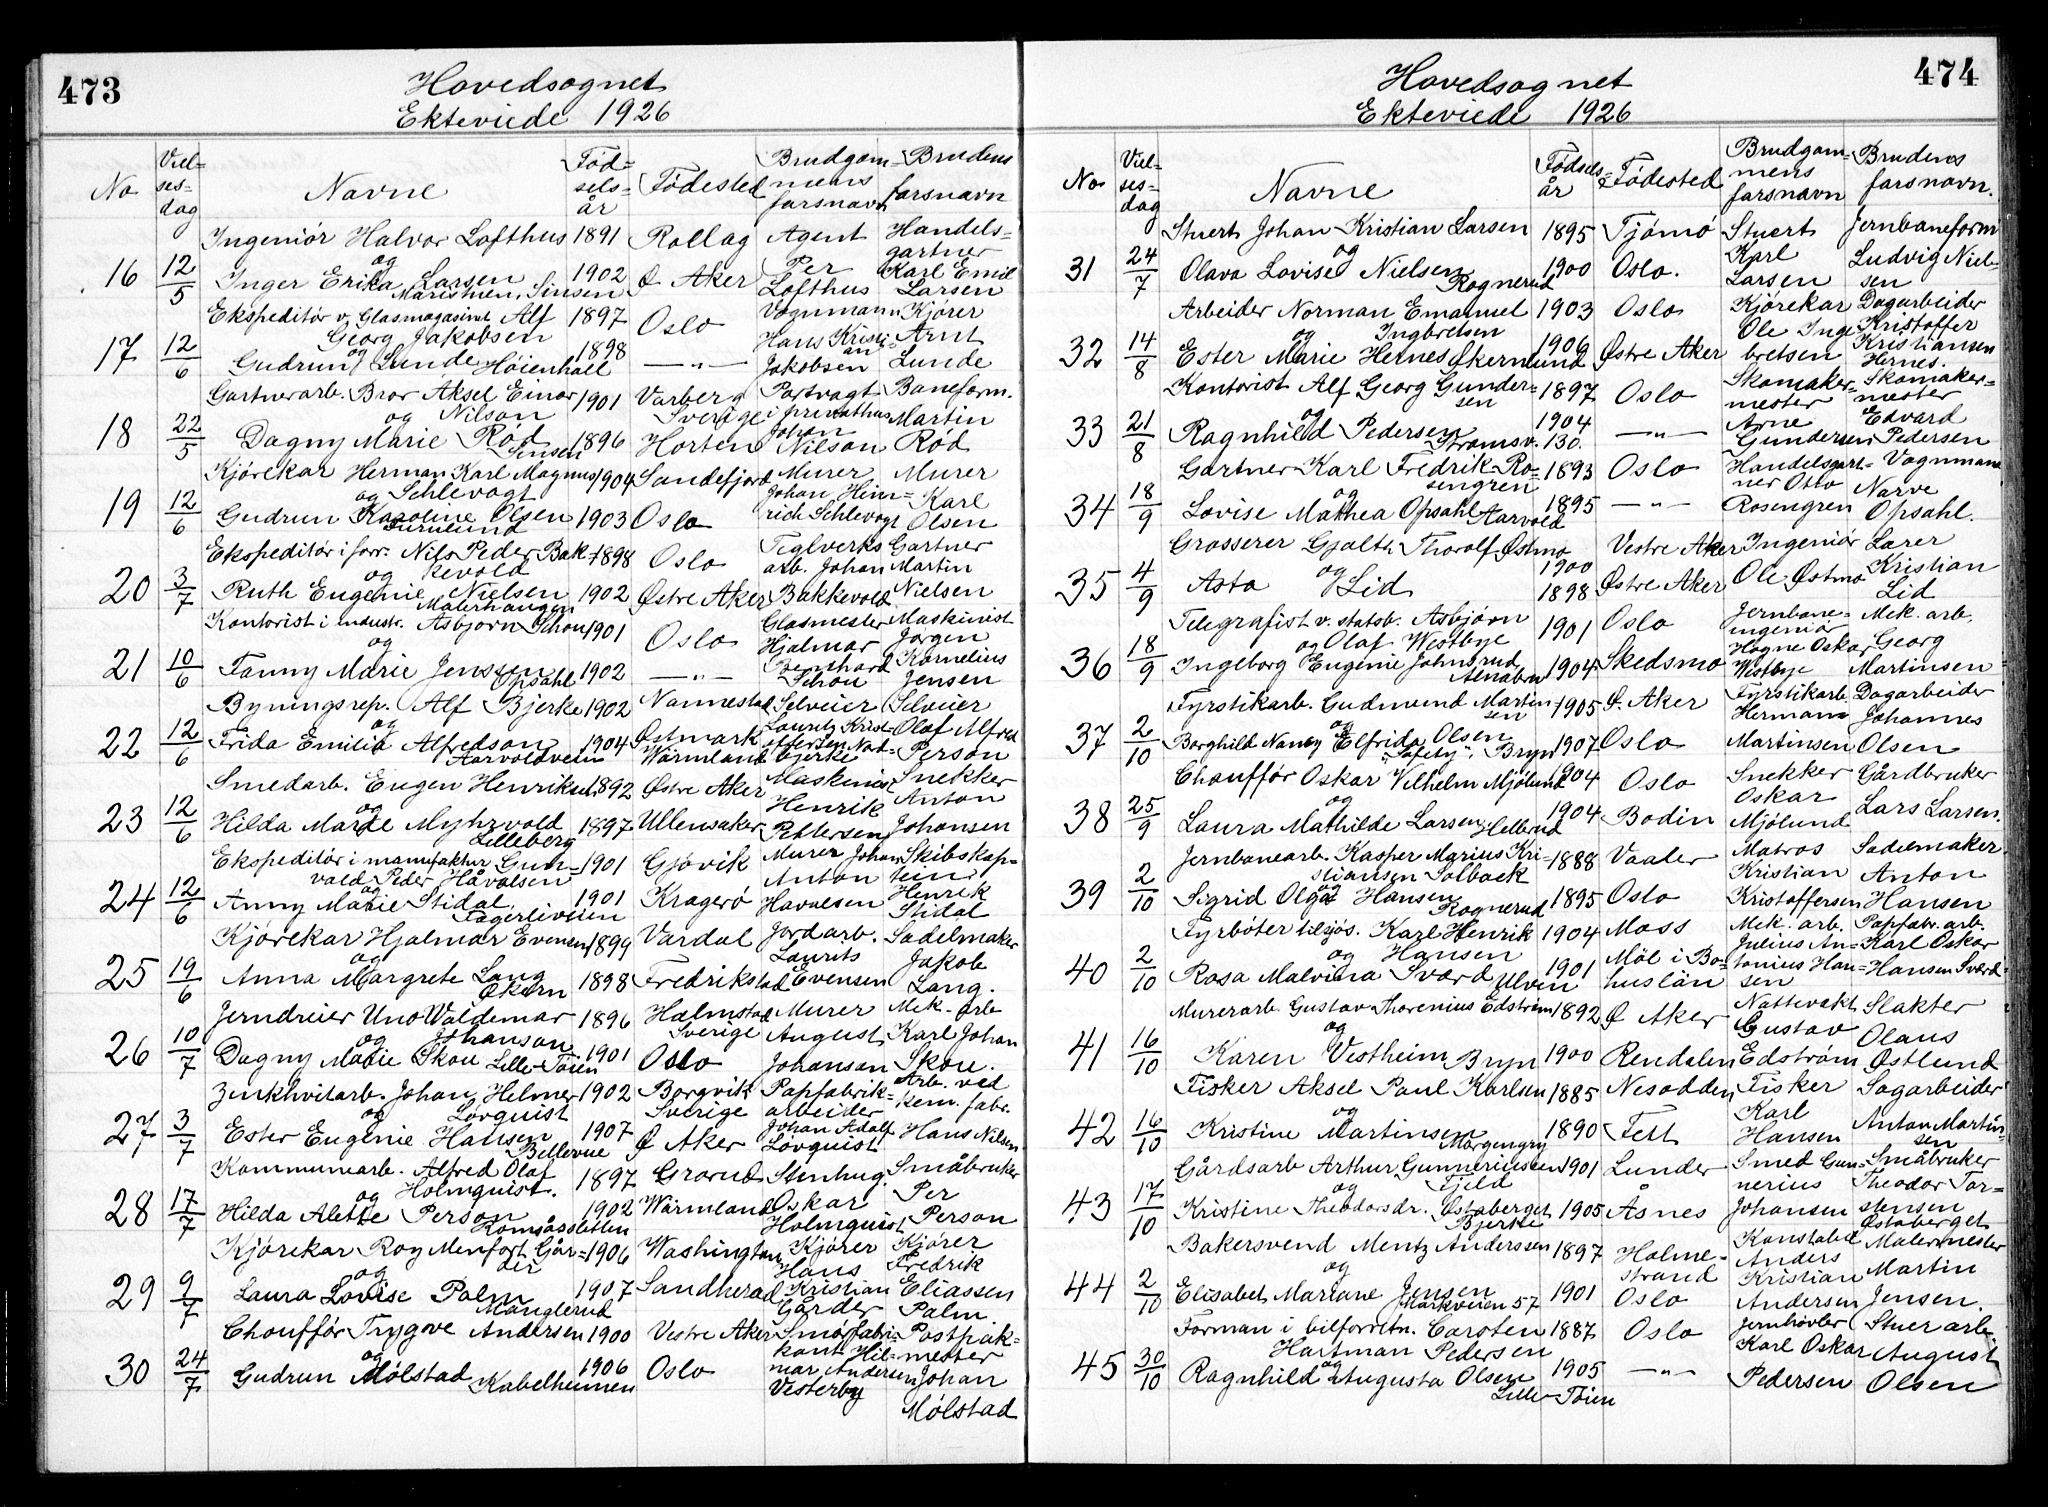 473
Hovedsognet
Ekteviede 1926
No
Viel-
ses-
dag
Navne
Fød-
sels-
år
Fødested
Brudgom-
mens
farsnavn
Brudens
farsnavn
16 12/5 Ingeniør Halvor Lofthus 1891 Rollag Agent Per Lofthus Handels-
gartner
og
Inger Erika Larsen 1902 Ø Aker Karl Emil
Larsen
Sinsen
17 12/6 Ekspeditør v. Glasmagasinet Alf 1897 Oslo Vognmann Kjører
Georg Jakobsen Hans Kristi- Arnt
og an
Gudrun Lunde Høienhall 1898 —"— Jakobsen Lunde
18 22/5 Gartnerarb. Bror Aksel Einar 1901 Varberg Portvagt Baneform.
og Nilson Sverige i privathus Martin
Dagny Marie Rød 1896 Horten Johan Nilson Rød
Sinsen
19 12/6 Kjørekar Herman Karl Magnus 1904 Sandefjord Murer Murer
og Schlevogt Johan Hein- Karl
Gudrun Karoline Olsen 1903 Oslo rich Schlevogt Olsen
Furulund
20 3/7 Ekspeditør i forr. Nils Peder Bak- 1898 Oslo Teglverks Gartner
og kevold arb. Johan Martin
Ruth Eugenie Nielsen 1902 Østre Aker Bakkevold Nielsen
Malerhaugen
21 10/6 Kontorist i industr. Asbjørn Schou 1901 Oslo Glasmester Maskinist
og Hjalmar Jørgen
Fanny Marie Jenssen 1902 —"— Bernhard Kornelius
Opsahl Schou Jensen
22 12/6 Bygningsrep. Alf Bjerke 1902 Nannestad Selveier Selveier
og Lauritz Krist- Olaf Alfred
Frida Emilia Alfredson 1904 Østmark Person
Aarvoldveien Wärmland Bjerke
23 12/6 Smedarb. Eugen Henriksen 1892 Østre Aker Maskinist Snekker
og Henrik Anton
Hilda Marie Myhrvold 1897 Ullensaker Pettersen Johansen
Lilleberg
24 12/6 Ekspeditør i manufaktur Gun- 1901 Gjøvik Murer Johan Skibskap-
vald Peder Håvalsen Anton tein
og
Anny Marie Stidal 1901 Kragerø Havalsen Henrik
Fagerliveien Stidal
25 19/6 Kjørekar Hjalmar Evensen 1899 Vardal Jordarb. Sadelmaker
og Laurits Jakob
Anna Margrete Lang 1898 Fredrikstad Evensen Lang.
Økern
26 10/7 Jerndreier Uno Valdemar 1896 Halmstad Murer Mek. arb
og Johanson Sverige August Karl Johan
Dagny Marie Skou 1901 Oslo Johanson Skou.
Lille Tøien
27 3/7 Zinkhvitarb. Johan Helmer 1902 Borgvik Papfabrik- Arb. ved
og Løvquist Sverige arbeider kem. fabr.
Ester Eugenie Hansen 1907 Ø Aker Johan Adolf Hans Nilsen
Bellevue Løvquist
28 17/7 Kommunearb. Alfred Olaf 1897 Grorud Stenhug. Småbruker
og Holmquist. Oskar Per
Hilda Alette Person 1902 Wärmland Holmquist Person
Romsåssletten
29 9/7 Kjørekar Roy Menfort Går- 1906 Washington Kjører Kjører
og der Hans Fredrik
Laura Lovise Palm 1907 Sandherad Kristian Eliassen
Manglerud Gårder Palm
30 24/7 Chouffør Trygve Andersen 1900 Vestre Aker Smørfabri- Postpak-
og kant Hil- mester
Gudrun Mølstad 1906 Oslo mar Andersen Johan
Kabelheimen Vesterby Mølstad
474
Hovedsognet
Ekteviede 1926
No
Viel-
ses-
dag
Navne
Fødsels-
år
Fødested
Brudgom-
mens
farsnavn
Brudens
farsnavn.
31 24/7 Stuert Johan Kristian Larsen 1895 Tjømø Stuert Jernbaneform
og Karl Ludvig Niel-
Olava Lovise Nielsen 1900 Oslo. Larsen sen
Rognerud
32 14/8 Arbeider Norman Emanuel 1903 Oslo Kjørekar Dagarbeider
og Ingbretsen Ole Inge Kristoffer
Ester Marie Hernes Økernlund 1906 Østre Aker bretsen Kristiansen
Hernes.
33 21/8 Kontorist Alf Georg Gunder- 1897 Oslo Skomaker- Skomaker-
sen mester mester
og Arne Edvard
Ragnhild Pedersen 1904 —"— Gundersen Pedersen
Strømsv. 130.
34 18/9 Gartner Karl Fredrik Ro- 1893 Oslo Handelsgart- Vognmann
og sengren ner Otto Narve
Lovise Mathea Opsahl Aarvold 1895 —"— Rosengren Opsahl.
35 4/9 Grosserer Gjalth Thorolf Østmo 1900 Vestre Aker Ingeniør Lærer
og Ole Østmo Kristian
Asta Lid 1898 Østre Aker Lid
36 18/9 Telegrafist v. statsb. Asbjørn 1901 Oslo Jernbane- Mek. arb.
og Olaf Westbye ingeniør Georg
Ingeborg Eugenie Johnsrud 1904 Skedsmo Hagne Oskar Martinsen
Alnabru Westbye
37 2/10 Fyrstikarb. Gudmund Martin 1905 Ø. Aker Fyrstikarb. Dagarbeider
og sen Herman Johannes
Borghild Nancy Elfrida Olsen 1907 Oslo Martinsen Olsen
"Safety", Bryn
38 25/9 Chouffør Oskar Vilhelm Mjølund 1904 Oslo Snekker Gårdbruker
og Oskar Lars Larsen.
Laura Mathilde Larsen Hellerud 1904 Bodin Mjølund
39 2/10 Jernbanearb. Kasper Marius Kri- 1888 Vaaler Matros Sadelmaker
stiansen Solbaek Kristian Anton
og
Sigrid Olga Hansen 1895 Oslo Kristoffersen Hansen
Rognerud
40 2/10 Fyrbøter tilsjøs. Karl Henrik 1904 Moss Mek. arb. Papfabr. arb.
og Hansen Julius An- Karl Oskar
Rosa Malvina Sværd Ulven 1901 Möl i Bo- tonius Han- Hansen Sværd
huslän sen
41 16/10 Murerarb. Gustav Thorenius Edström 1892 Ø Aker Nattevakt Slakter
og Gustav Olaus
Karen Vestheim Bryn 1900 Rendalen Edstrøm Østlund
42 16/10 Fisker Aksel Paul Karlsen 1885 Nesodden Fisker Sagarbeider
og Karl Anton Martin-
Kristine Martinsen 1890 Fett Hansen sen
Morgengry
43 17/10 Gårdsarb Arthur Gunneriussen 1901 Lunder Smed Gun- Småbruker
og Fjeld nerius Theodor Tor-
Kristine Theodorsdr. Østaberget 1905 Åsnes Johansen stensen
Bjerke Østaberget
44 2/10 Bakersvend Mentz Anderssen 1897 Holme- Konstabel Malermester
og strand Anders Martin
Elisabet Mariane Jensen 1901 Oslo Kristian Jensen.
Markveien 57 Andersen
45 30/10 Forman i bilforretn. Carsten 1887 Oslo Jernhøvler Stuerarb.
Hartman Pedersen Karl Oskar August
og
Ragnhild Augusta Olsen 1905 —"— Pedersen Olsen
Lille Tøien